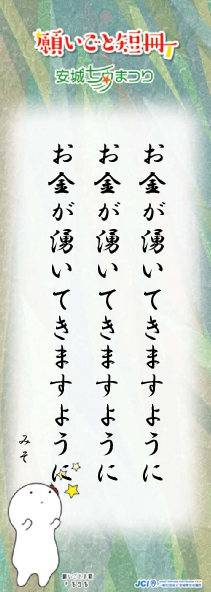 願いごと短冊
安城七夕まつり
お金が湧いてきますように
お金が湧いてきますように
お金が湧いてきますように
みそ
JCI